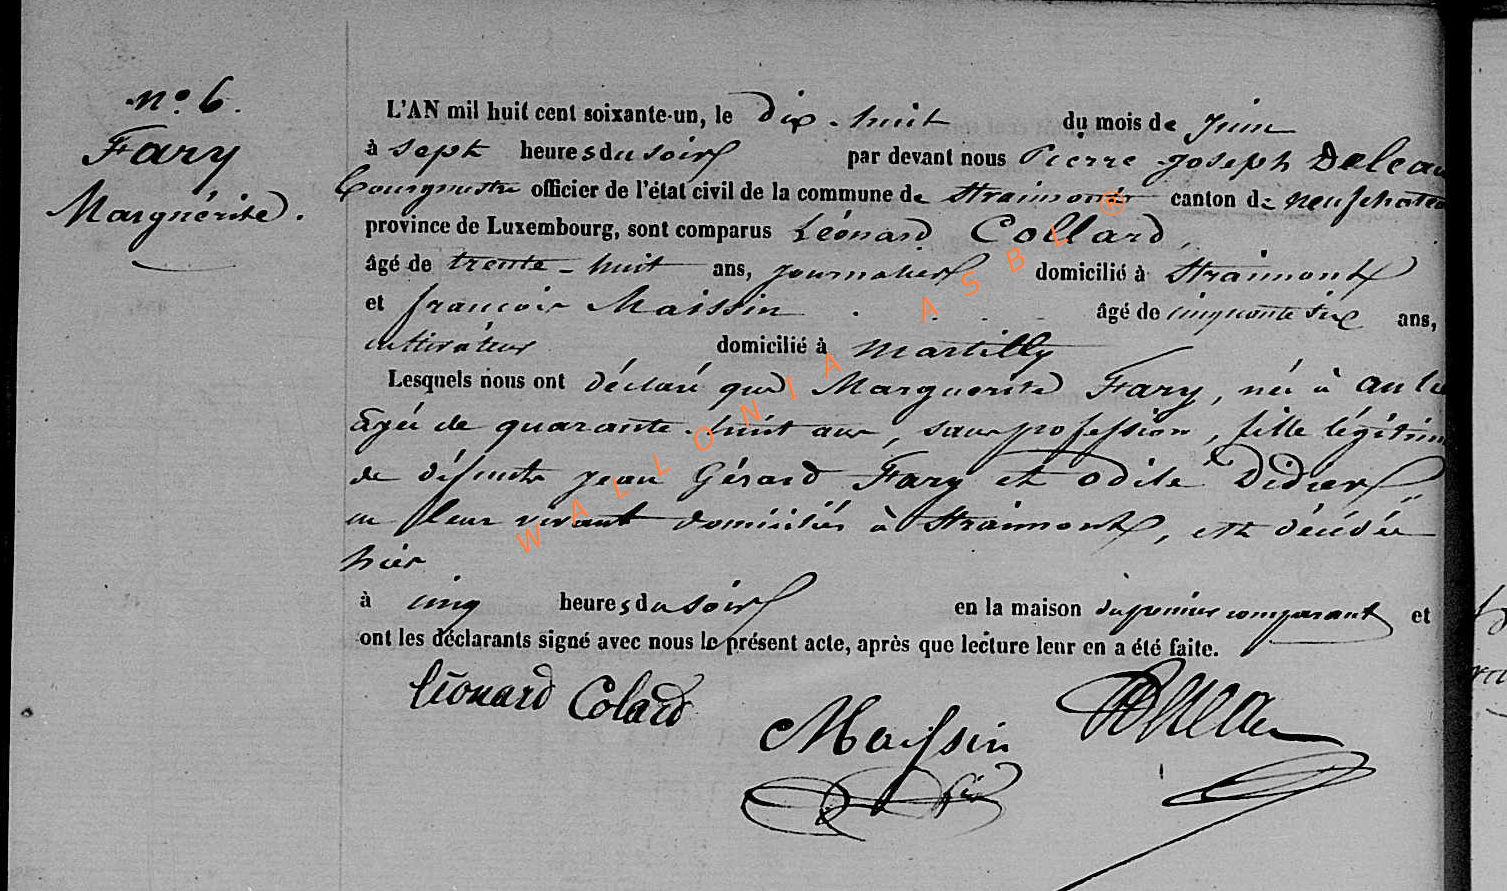 n° 6.
Fary
Marguérite.
L'AN mil huit cent soixante-un, le dix-huit du mois de Juin
à sept heures du soir par devant nous Pierre Joseph Deleau
Bourgmestre officier de l'état civil de la commune de Straimont canton de neufchateau
province de Luxembourg, sont comparus Léonard Collard,
âgé de trente-huit ans, journalier domicilié à Straimont
et françois Maissin âgé de cinquante six ans,
cultivateur domicilié à Martilly
Lesquels nous ont déclaré que Marguerite Fary, née à
âgée de quarante-huit ans, sans profession, fille légitime
de défunts Jean Gérard Fary et Odile Didier
en leur vivant domiciliés à Straimont, est décédée
hier
à cinq heures du soir en la maison du premier comparant et
ont les déclarants signé avec nous le présent acte, après que lecture leur en a été faite.
Léonard Colard
Maissin
Deleau
WALLONIA ASBL ®